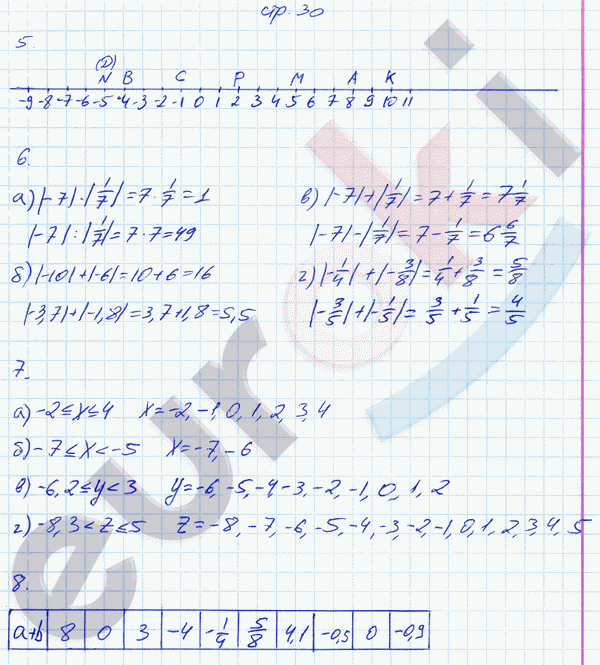 стр. 30
5.
(D)
N B C P M A K
-9 -8 -7 -6 -5 -4 -3 -2 -1 0 1 2 3 4 5 6 7 8 9 10 11
6.
а) |-7|·|1/7| = 7·1/7 = 1
|-7| : |1/7| = 7·7 = 49
б) |-10| + |-6| = 10+6 = 16
|-3,7| + |-1,8| = 3,7+1,8 = 5,5
в) |-7| + |1/7| = 7 + 1/7 = 7 1/7
|-7| - |1/7| = 7 - 1/7 = 6 6/7
г) |-1/4| + |-3/8| = 1/4 + 3/8 = 5/8
|-3/5| + |-1/5| = 3/5 + 1/5 = 4/5
7.
а) -2 ≤ x ≤ 4 x = -2, -1, 0, 1, 2, 3, 4
б) -7 ≤ x < -5 x = -7, -6
в) -6,2 ≤ y < 3 y = -6, -5, -4 -3, -2, -1, 0, 1, 2
г) -8,3 < z ≤ 5 z = -8, -7, -6, -5, -4, -3, -2, -1, 0, 1, 2, 3, 4, 5
8.
a+b 8 0 3 -4 -1/4 5/8 4,1 -0,5 0 -0,9
euroki